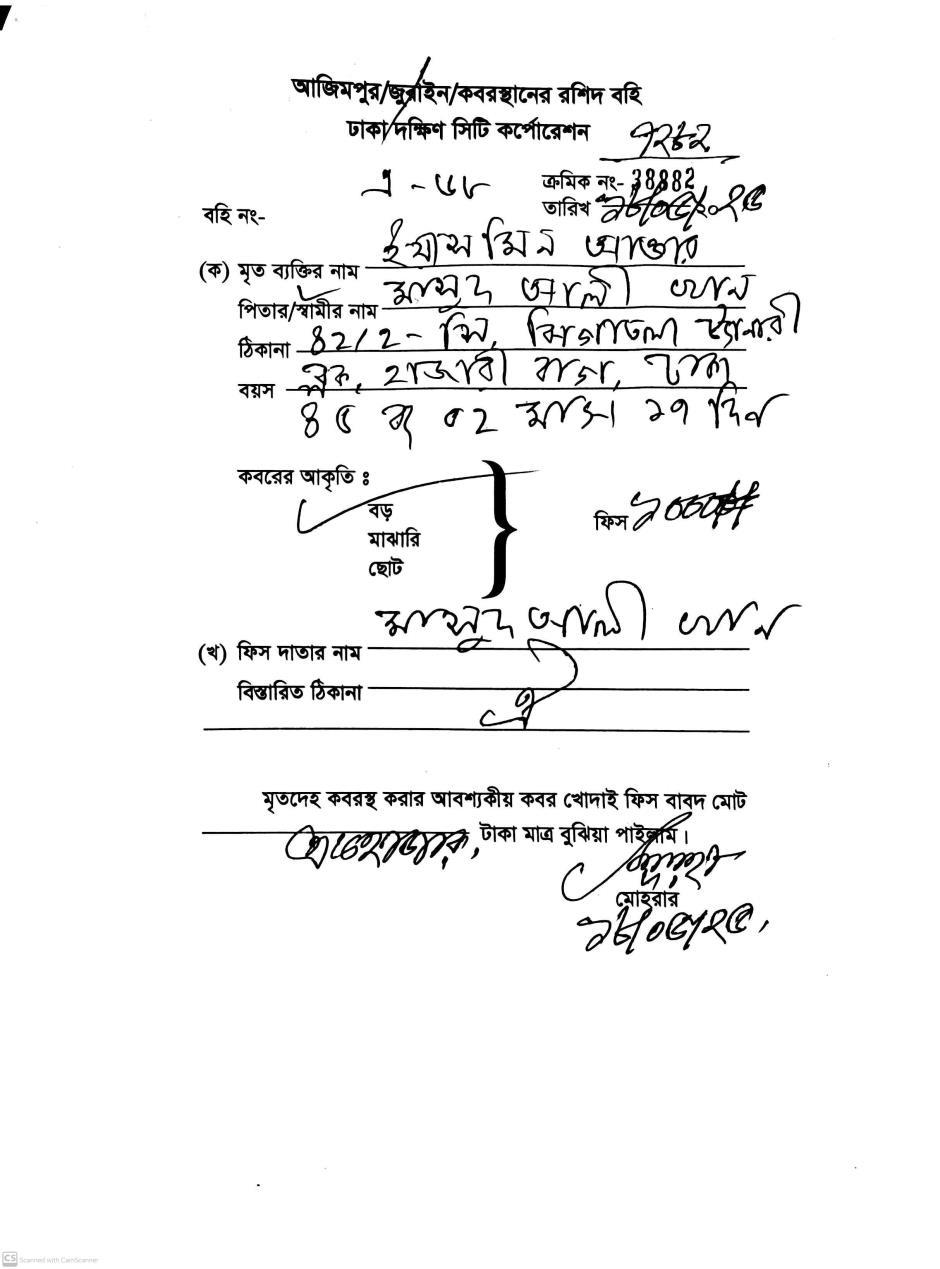 আজিমপুর/জুরাইন/কবরস্থানের রশিদ বহি
ঢাকা দক্ষিণ সিটি কর্পোরেশন
৭২৮২
এ - ৬৮
ক্রমিক নং- 38882
বহি নং-
তারিখ ১৮/০৫/২০২৫
(ক) মৃত ব্যক্তির নাম ইয়াসমিন আক্তার
পিতার/স্বামীর নাম মাসুদ আলী খান
ঠিকানা ৪২/২- সি, ঝিগাতলা ট্যানারী
বয়স ব্লক, হাজারী বাগ, ঢাকা
৪৫ ব ০২ মাস ১৭ দিন
কবরের আকৃতি ঃ
বড়
মাঝারি
ছোট
ফিস ১০০০
(খ) ফিস দাতার নাম মাসুদ আলী খান
বিস্তারিত ঠিকানা ঐ
মৃতদেহ কবরস্থ করার আবশ্যকীয় কবর খোদাই ফিস বাবদ মোট
একহাজার, টাকা মাত্র বুঝিয়া পাইলাম।
মোহরার
১৮/০৫/২৫
CS Scanned with CamScanner